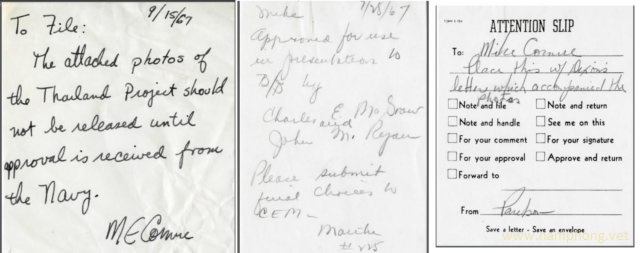 9/15/67
To File:
The attached photos of
the Thailand Project should
not be released until
approval is received from
the Navy.
M E Comrie
Mike 7/25/67
Approved for use
in presentation to
B/D by
Charles E.
and
John M. Regan
Please submit
final choices to
CEM-
ATTENTION SLIP
To: Mike Comrie
Place this w/ Dixon's
letter which accompanied the
photos
Note and file Note and return
Note and handle See me on this
For your comment For your signature
For your approval Approve and return
Forward to
From
Save a letter - Save an envelope
www.namphong.vet